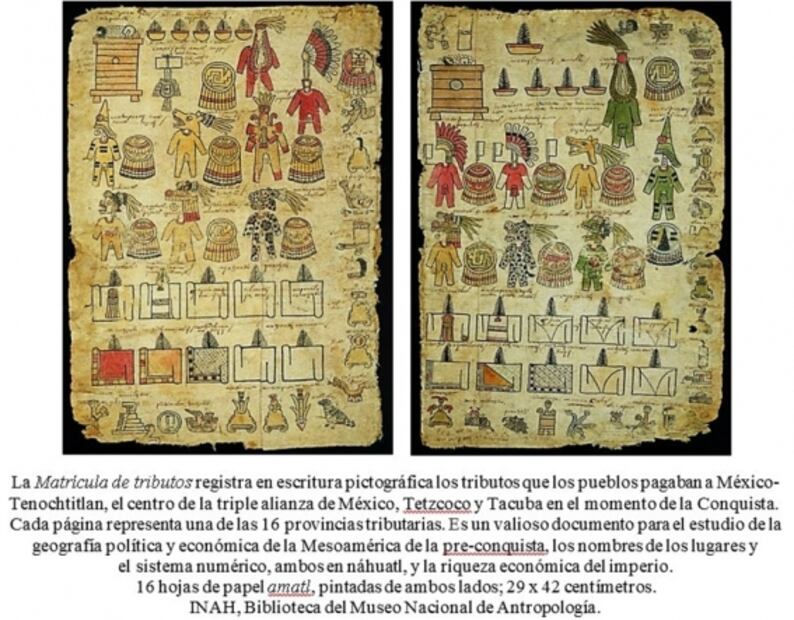 La Matrícula de tributos registra en escritura pictográfica los tributos que los pueblos pagaban a México-
Tenochtitlan, el centro de la triple alianza de México, Tetzcoco y Tacuba en el momento de la Conquista.
Cada página representa una de las 16 provincias tributarias. Es un valioso documento para el estudio de la
geografía política y económica de la Mesoamérica de la pre-conquista, los nombres de los lugares y
el sistema numérico, ambos en náhuatl, y la riqueza económica del imperio.
16 hojas de papel amatl, pintadas de ambos lados; 29 x 42 centímetros.
INAH, Biblioteca del Museo Nacional de Antropología.